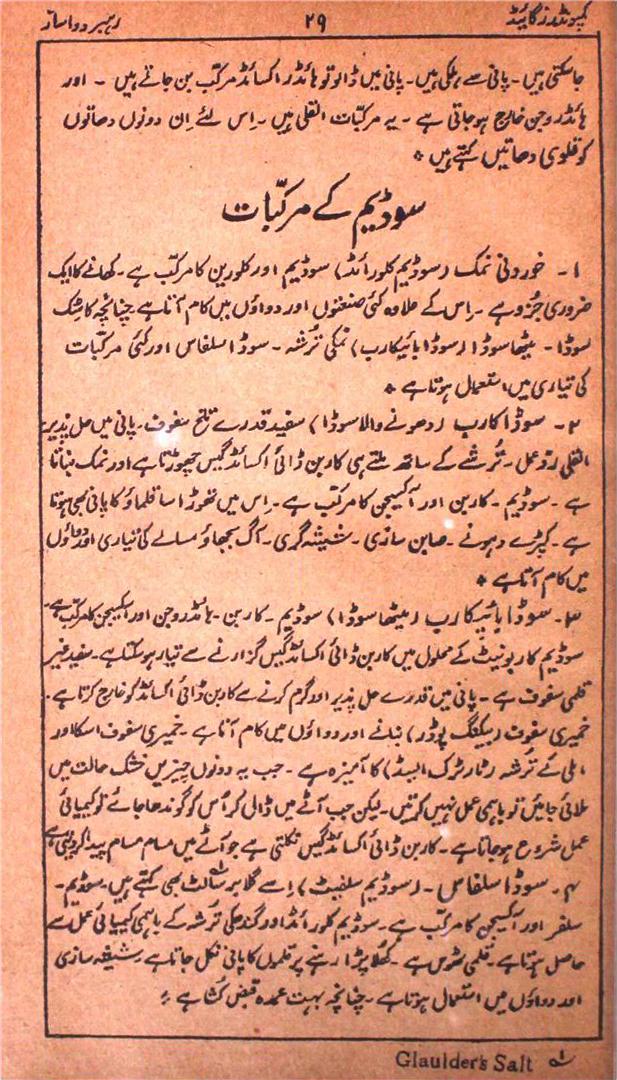 کمپونڈرز گائیڈ ۲۹ رہبر دوا ساز
جاسکتی ہیں ۔ پانی سے ہلکی ہیں ۔ پانی میں ڈالو تو ہائڈر اکسائڈ مرکّب بن جاتے ہیں ۔ اور
ہائڈروجن خارج ہوجاتی ہے ۔ یہ مرکّبات القلی ہیں ۔ اِس لئے اِن دونوں دھاتوں
کو قلوی دھاتیں کہتے ہیں *
سوڈیم کے مرکّبات
۱ ۔ خوردنی نمک (سوڈیم کلورائڈ) سوڈیم اور کلورین کا مرکّب ہے ۔ کھانے کا ایک
ضروری جُزو ہے ۔ اِس کے علاوہ کئی صنعتوں اور دواؤں میں کام آتا ہے چنانچہ کاسٹک
سوڈا ۔ میٹھا سوڈا (سوڈا بائیکارب) نمکی تُرشہ ۔ سوڈا سلفاس اور کئی مرکّبات
کی تیاری میں استعمال ہوتا ہے *
۲ ۔ سوڈا کارب (دھونے والا سوڈا) سفید قدرے تلخ سفوف ۔ پانی میں حل پذیر
القلی ردِّ عمل ۔ تُرشے کے ساتھ ملتے ہی کاربن ڈائی اکسائڈ گیس چھوڑتا ہے اور نمک بناتا
ہے ۔ سوڈیم ۔ کاربن اور آکسیجن کا مرکّب ہے ۔ اِس میں تھوڑا سا قلماؤ کا پانی بھی ہوتا
ہے ۔ کپڑے دہونے ۔ صابن سازی ۔ شیشہ گری ۔ آگ بجھاؤ مسالے کی تیاری اور دواؤں
میں کام آتا ہے *
۳ ۔ سوڈا بائیکارب (میٹھا سوڈا) سوڈیم ۔ کاربن ۔ ہائڈروجن اور آکسیجن کا مرکّب ہے ۔
سوڈیم کاربونیٹ کے محلول میں کاربن ڈائی اکسائڈ گیس گزارنے سے تیار ہوسکتا ہے ۔ سفید غیر
قلمی سفوف ہے ۔ پانی میں قدرے حل پذیر اور گرم کرنے سے کاربن ڈائی اکسائڈ کو خارج کرتا ہے ۔
خمیری سفوف (بیکنگ پوڈر) بنانے اور دواؤں میں کام آتا ہے ۔ خمیری سفوف اسکا اور
املی کے تُرشہ (ٹارٹرک ایسڈ) کا آمیزہ ہے ۔ جب یہ دونوں چیزیں خشک حالت میں
ملائی جائیں تو باہمی عمل نہیں کرتیں ۔ لیکن جب آٹے میں ڈال کر اُس کو گوندھا جائے تو کیمیائی
عمل شروع ہوجاتا ہے ۔ کاربن ڈائی اکسائڈ گیس نکلتی ہے جو آٹے میں مسام مسام پیدا کردیتی ہے
۴ ۔ سوڈا سلفاس ۔ (سوڈیم سلفیٹ) اِسے گلابر سالٹ لہ بھی کہتے ہیں ۔ سوڈیم ۔
سلفر اور آکسیجن کا مرکّب ہے ۔ سوڈیم کلورائڈ اور گندھکی تُرشہ کے باہمی کیمیائی عمل سے
حاصل ہوتا ہے ۔ قلمی ٹھوس ہے ۔ کھُلا پڑا رہنے پر قلموں کا پانی نکل جاتا ہے ۔ شیشہ سازی
اور دواؤں میں استعمال ہوتا ہے ۔ چنانچہ بہت عمدہ قبض کشا ہے ۔
لہ Glaulder's Salt